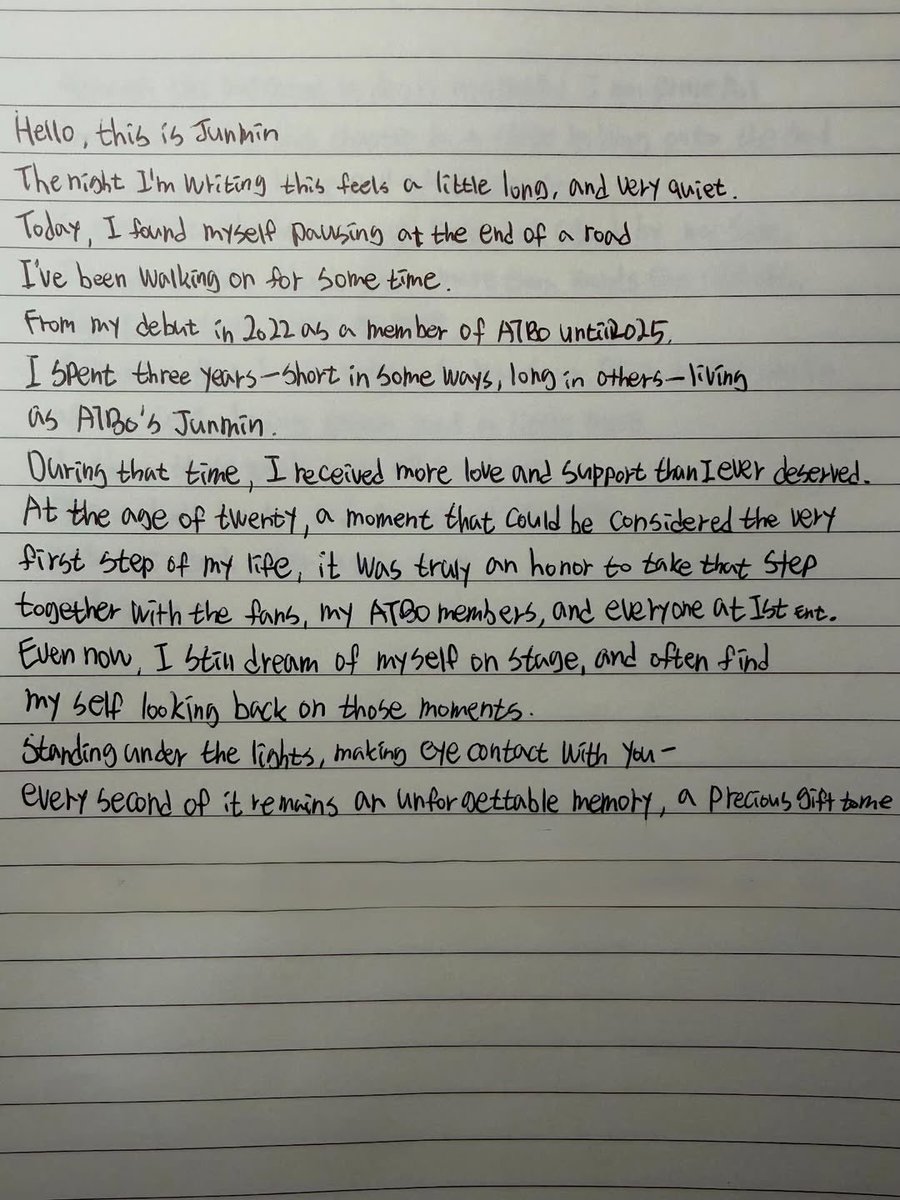 Hello, this is Junmin
The night I'm writing this feels a little long, and very quiet.
Today, I found myself pausing at the end of a road
I've been walking on for some time.
From my debut in 2022 as a member of ATBO until 2025,
I spent three years—short in some ways, long in others—living
as ATBO's Junmin.
During that time, I received more love and support than I ever deserved.
At the age of twenty, a moment that could be considered the very
first step of my life, it was truly an honor to take that step
together with the fans, my ATBO members, and everyone at IST Ent.
Even now, I still dream of myself on stage, and often find
my self looking back on those moments.
Standing under the lights, making eye contact with you—
every second of it remains an unforgettable memory, a precious gift to me